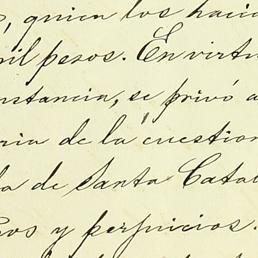 , quien los hacia
mil pesos. En virtu
nstancia, se privó a
ria de la cuestion
la de Santa Catal
ños y perjuicios.